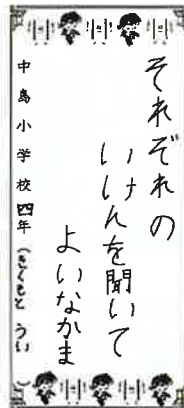 それぞれの
いけんを聞いて
よいなかま
中島小学校四年（きくもと うい）